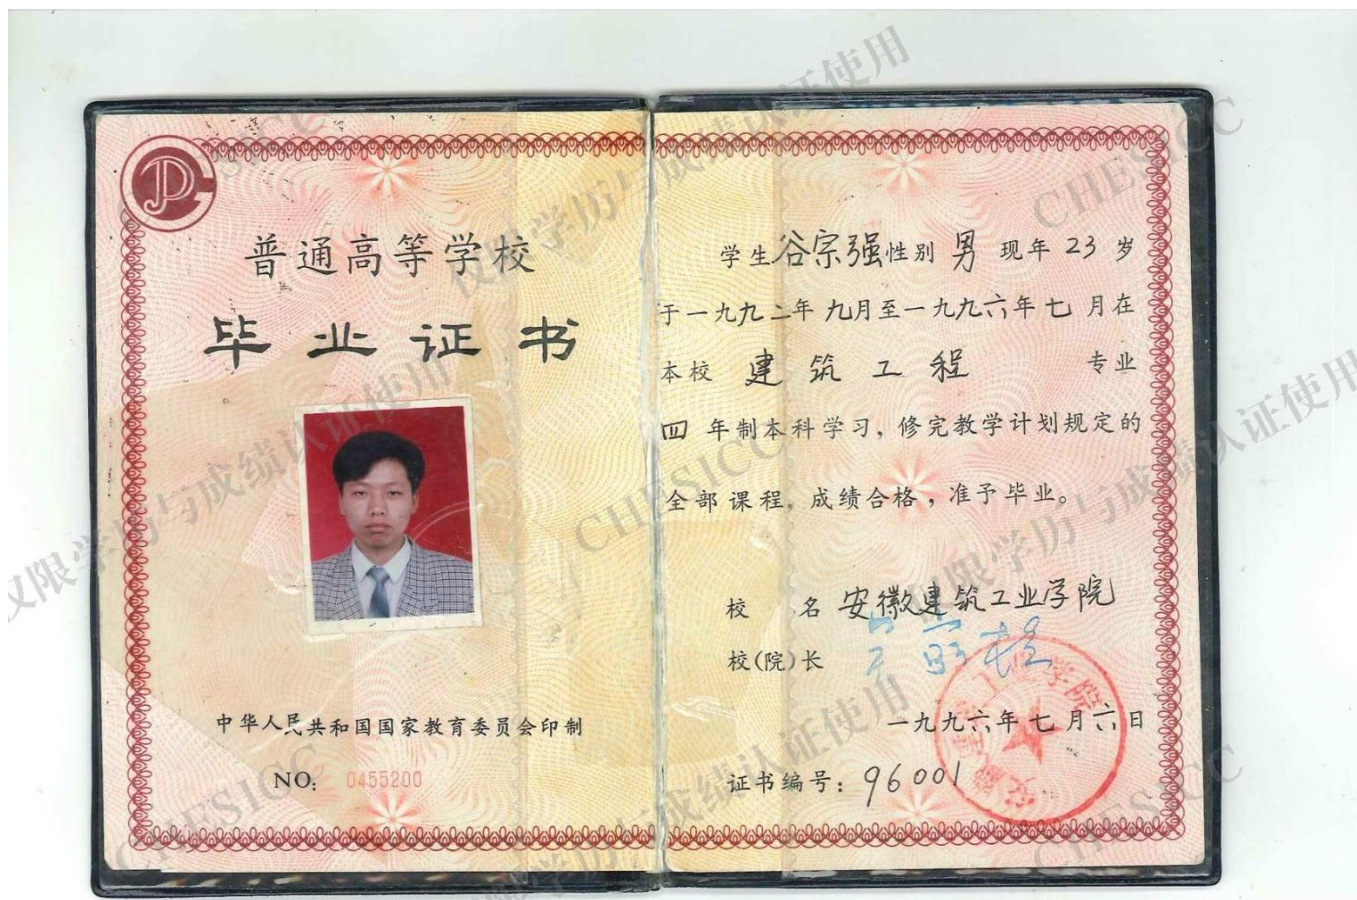 普通高等学校
毕业证书
中华人民共和国国家教育委员会印制
NO: 0455200
学生谷宗强性别 男 现年 23 岁
于一九九二年 九月至一九九六年 七 月在
本校 建筑工程 专业
四 年制本科学习, 修完教学计划规定的
全部课程, 成绩合格, 准予毕业。
校 名 安徽建筑工业学院
校(院)长
一九九六年 七 月 六 日
证书编号: 96001
仅限学历与成绩认证使用
CHESICC